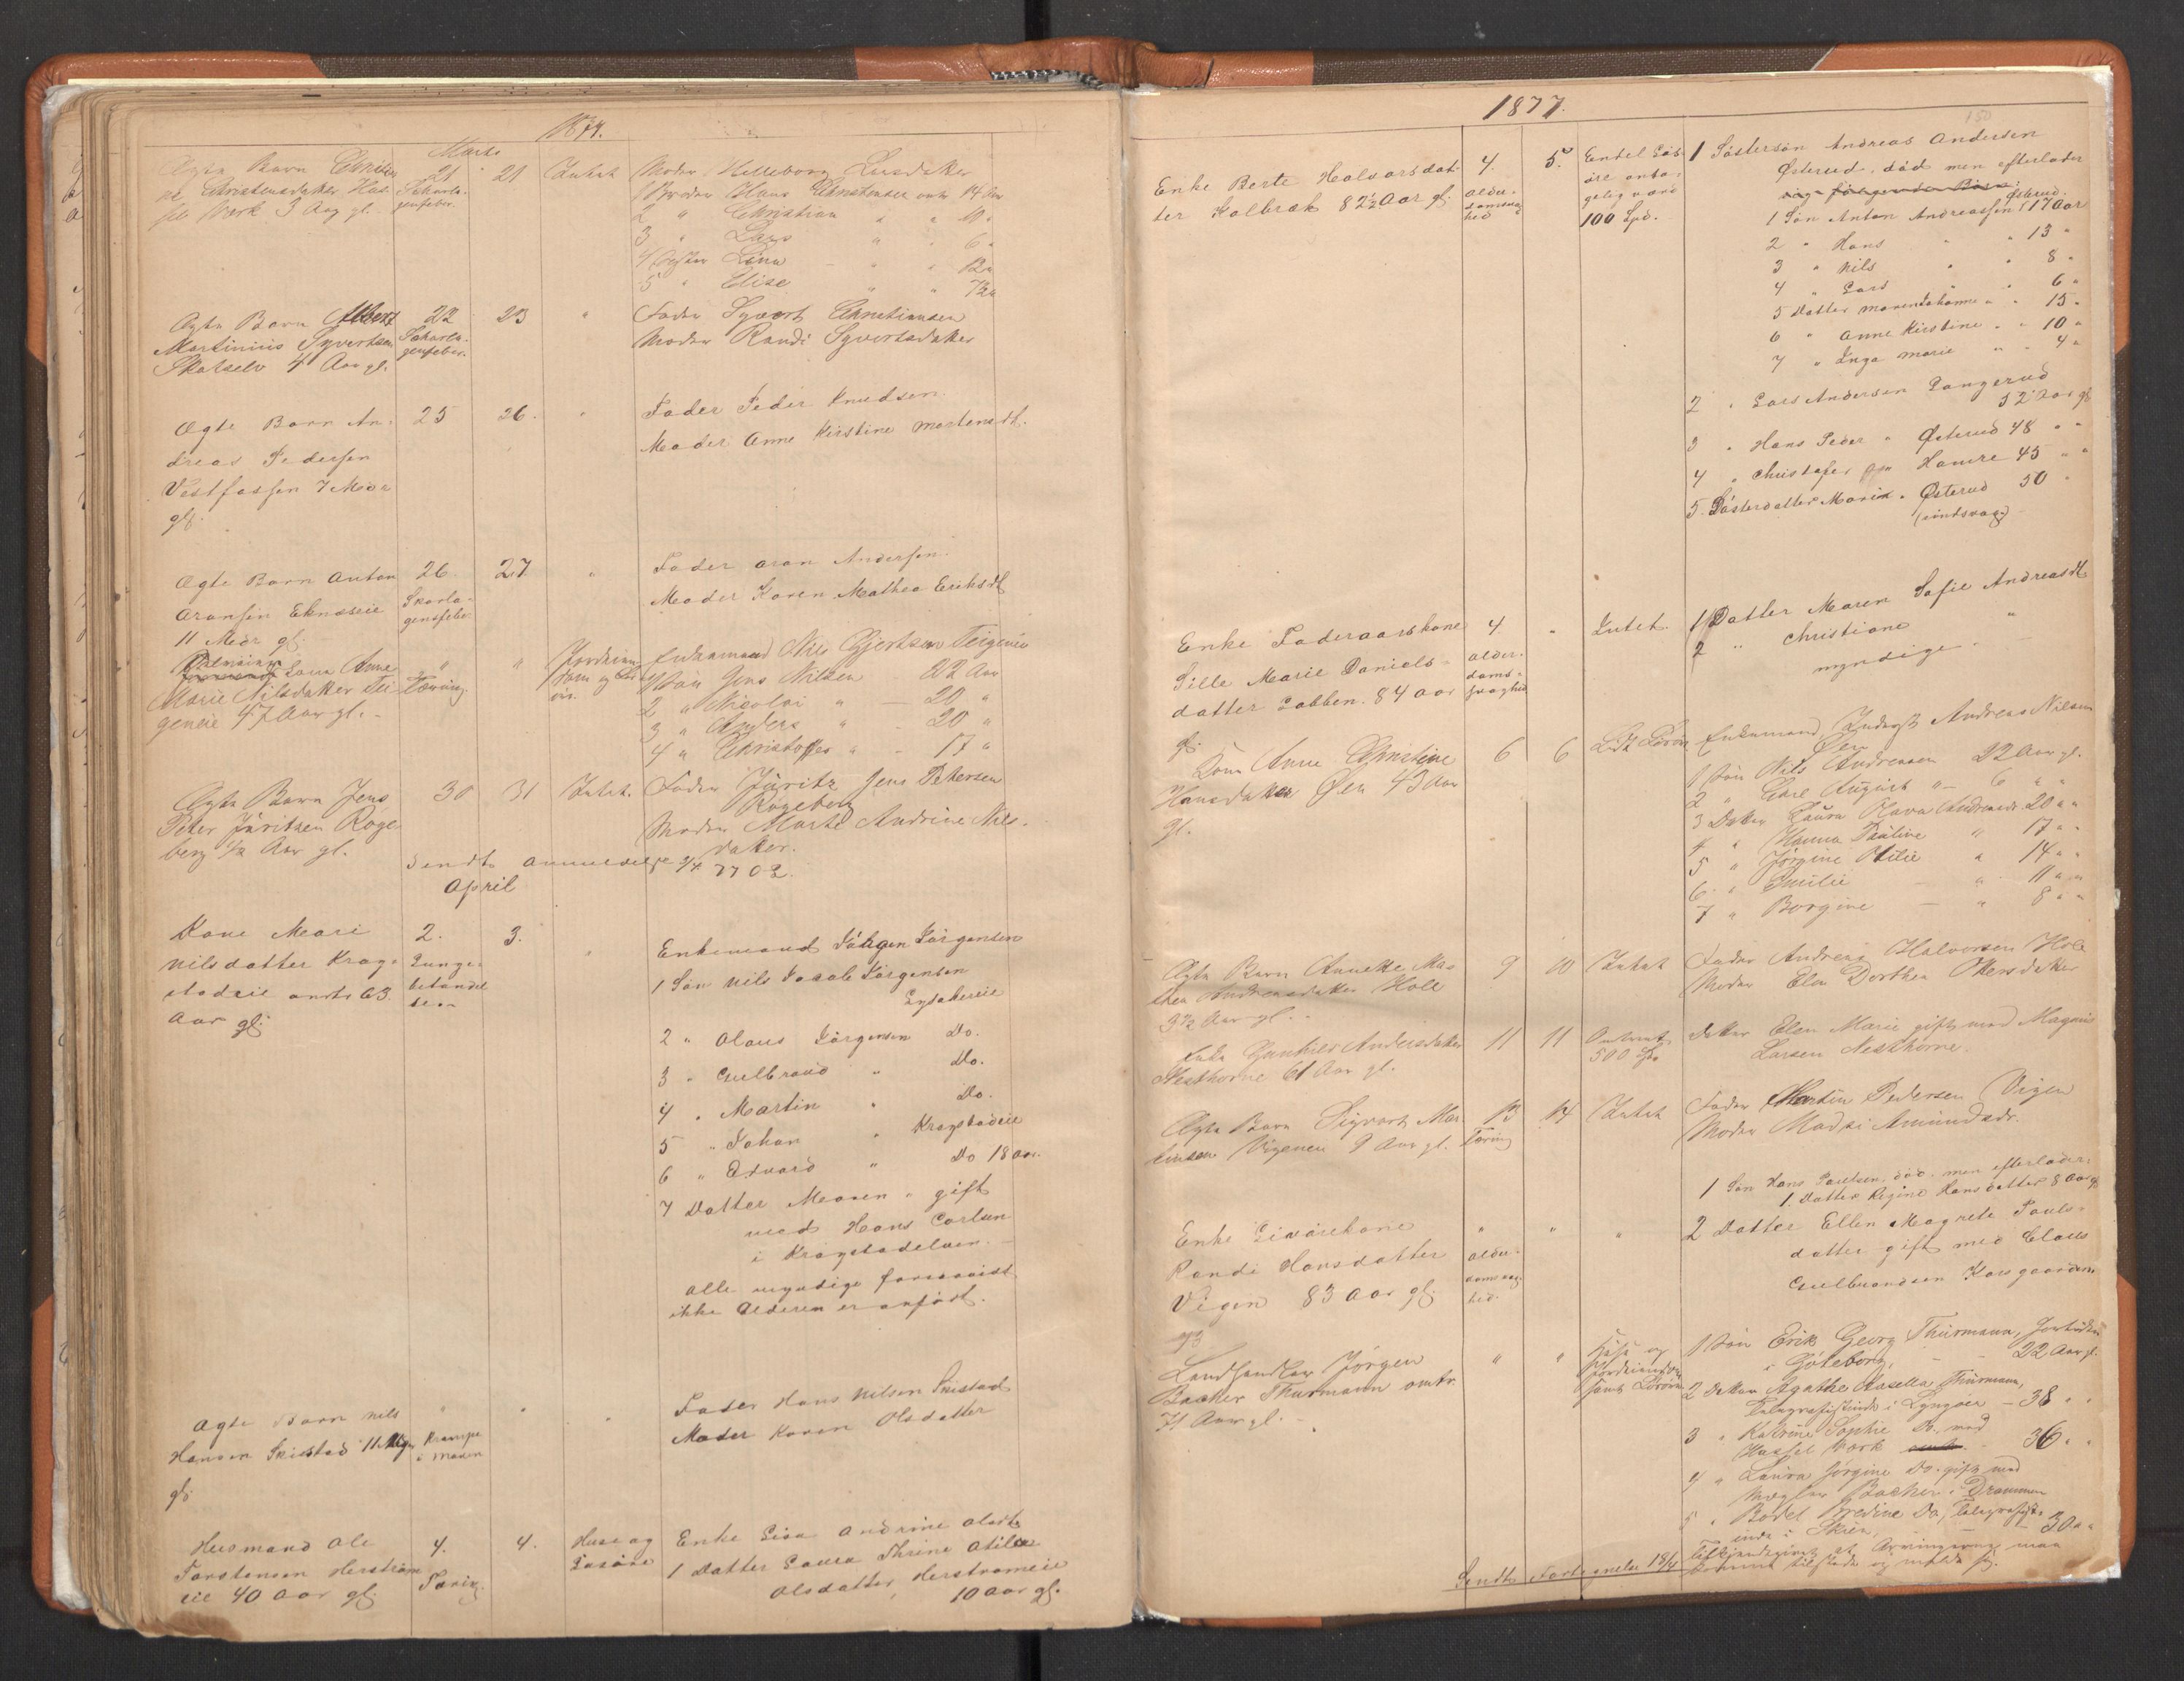 1877.
Marts
Ægte Barn Christi-
ne Christensdatter Has-
sel Værk 3 Aar gl.
21
Skarla-
gensfeber.
21
Intet
Moder Helleborg Larsdatter
1 Broder Hans Christensen omtr 14 Aar
2 " Christian " " 10 "
3 " Lars " " 6 "
4 Søster Lina " " 12 "
5 " Elise " " 7½ "
Ægte Barn Albert
Martinius Syvertsen
Skotselv 4 Aar gl.
22
Skarla-
gensfeber.
23
"
Fader Syvert Christiansen
Moder Randi Syvertsdatter
Ægte Barn An-
dreas Pedersen
Vestfossen 7 Mdr
gl.
25
26.
"
Fader Peder Knudsen
Moder Anne Kirstine Mortensdt.
Ægte Barn Anton
Aronsen Eknæseie
11 Mdr gl.
26
Skarla-
gensfeber
27
"
Fader Aron Andersen
Moder Karen Mathea Eriksdt
Kone Anne
Marie Nilsdatter Tei-
geneie 47 Aar gl. -
"
Tæring.
"
Jordeien-
dom og Løs-
øre
Enkemand Nils Gjertsen Teigeneie
1 Søn Jens Nilsen 22 Aar
2 " Nicolai " — 20 "
3 " Anders " 20 "
4 " Christoffer " - 17 "
Ægte Barn Jens
Peter Júritsen Roge-
berg ½ Aar gl.
30
31
Intet.
Fader Júritz Jens Petersen
Rogeberg
Moder Marte Andrine Nils-
datter.
Sendt Anmeldelse 2/4 77 02.
April
Kone Mari
Nilsdatter Krag-
stadeie omtr 63
Aar gl.
2.
Lunge-
betændel
se
3.
"
Enkemand Jörgen Jörgensen
1 Søn Nils Jacob Jörgensen
Lysakereie
2 " Olaus Jörgensen Do.
3 " Gulbrand " Do.
4 " Martin " Do.
5 " Johan " Kragstadeie
6 " Edvard " Do 18 Aar.
7 Datter Maren " gift
med Hans Carlsen
i Kragstadelven. —
alle myndige forsaavidt
ikke Alderen er anført.
Ægte Barn Nils
Hansen Skistad 11 Uger
gl.
"
Krampe
i Maven
"
"
Fader Hans Nilsen Skistad
Moder Karen Olsdatter
Husmand Ole
Torstensen Herstrøm
eie 40 Aar gl.
4.
Tæring.
4.
Huse og
Løsøre
Enke Lisa Andrine Olsdt
1 Datter Laura Thrine Otilie
Olsdatter, Herstrømeie
10 Aar gl.
1877.
150
Enke Berte Halvorsdat-
ter Kolbræk 82½ Aar gl.
4.
Alder-
domssvag-
hed
5.
Endel Løs-
øre anta-
gelig værd
100 Spd.
1 Söstersön Andreas Andersen
Østerud, död men efterlader
sig følgende Börn:
1 Søn Anton Andreassen Østerud 17 Aar
2 " Hans " " 13 "
3 " Nils " " 8 "
4 " Lars " " 6 "
5 Datter Maren Johanne " " 15 "
6 " Anne Kirstine " " 10 "
7 " Inga Marie " " 4 "
2 " Lars Andersen Langerud
52 Aar gl.
3 " Hans Peder " Østerud 48 " "
4 " Christofer " Hamre 45 " "
5 Søsterdatter Maria " Østerud 50 "
(sindssvag)
Enke Foderaarskone
Sille Marie Daniels-
datter Lobben. 84 Aar
gl.
4.
Alder-
doms-
svaghed
"
Intet.
1 Datter Maren Sofie Andreasdt
2 " Christiane "
myndige.
Kone Anne Christine
Hansdatter Øen 43 Aar
gl.
6
6
Lidt Løsøre
Enkemand, Inderst Andreas Nilsen
Øen
1 Søn Nils Andreasen 22 Aar gl.
2 " Carl August " - 6 " "
3 Datter Laura Olava Andreasdt 20 " "
4 " Hanna Pauline " 17 " "
5 " Jørgine Otilie " 14 " "
6 " Emilie — " 11 " "
7 " Borgine — " 8 " "
Ægte Barn Annette Ma-
thea Andreasdatter Hole
3½ Aar gl. -
9
10
Intet
Fader Andreas Halvorsen Hole
Moder Elen Dorthea Ottersdatter
Enke Gunhild Andersdatter
Nesthorne 61 Aar gl.
11
11
Omtrent
500 Sp.
Datter Elen Marie gift med Magnus
Larsen Nesthorne.
Ægte Barn Sigvart Mar-
tinsen Vigenen 9 Aar gl.
13
Tæring
14
Intet
Fader Martin Pedersen Vigen
Moder Madsi Amundsdr.
Enke
Randi Hansdatter
Vigen 83 Aar gl.
"
Alder-
domssvag-
hed.
"
"
1 Søn Hans Paulsen, död men efterlader:
1 Datter Regine Hansdatter 8 Aar gl
2 Datter Ellen Magrete Pauls-
datter gift med Claus
Gulbrandsen Korsgaarden
Landhandler Jørgen
Backer Thurmann omtr.
71 Aar gl. -
"
"
Huse og
Jordeiendom
samt Løsøre
1 Søn Erik Georg Thürmann,
i Göteborg, - - 22 Aar gl.
2 Datter Agathe Thürmann,
Telegrafistinde i Lyngøer — 38 " "
3 " Katrine Sophie Do. ved
Hassel Værk — 36 " "
4 " Laura Jørgine Do. gift med
Mægler Backer i Drammen
5 " Bodel Bredine Do, Telegrafist-
inde i Skien, — 30 " "
Sendt Fortegnelse 18/4